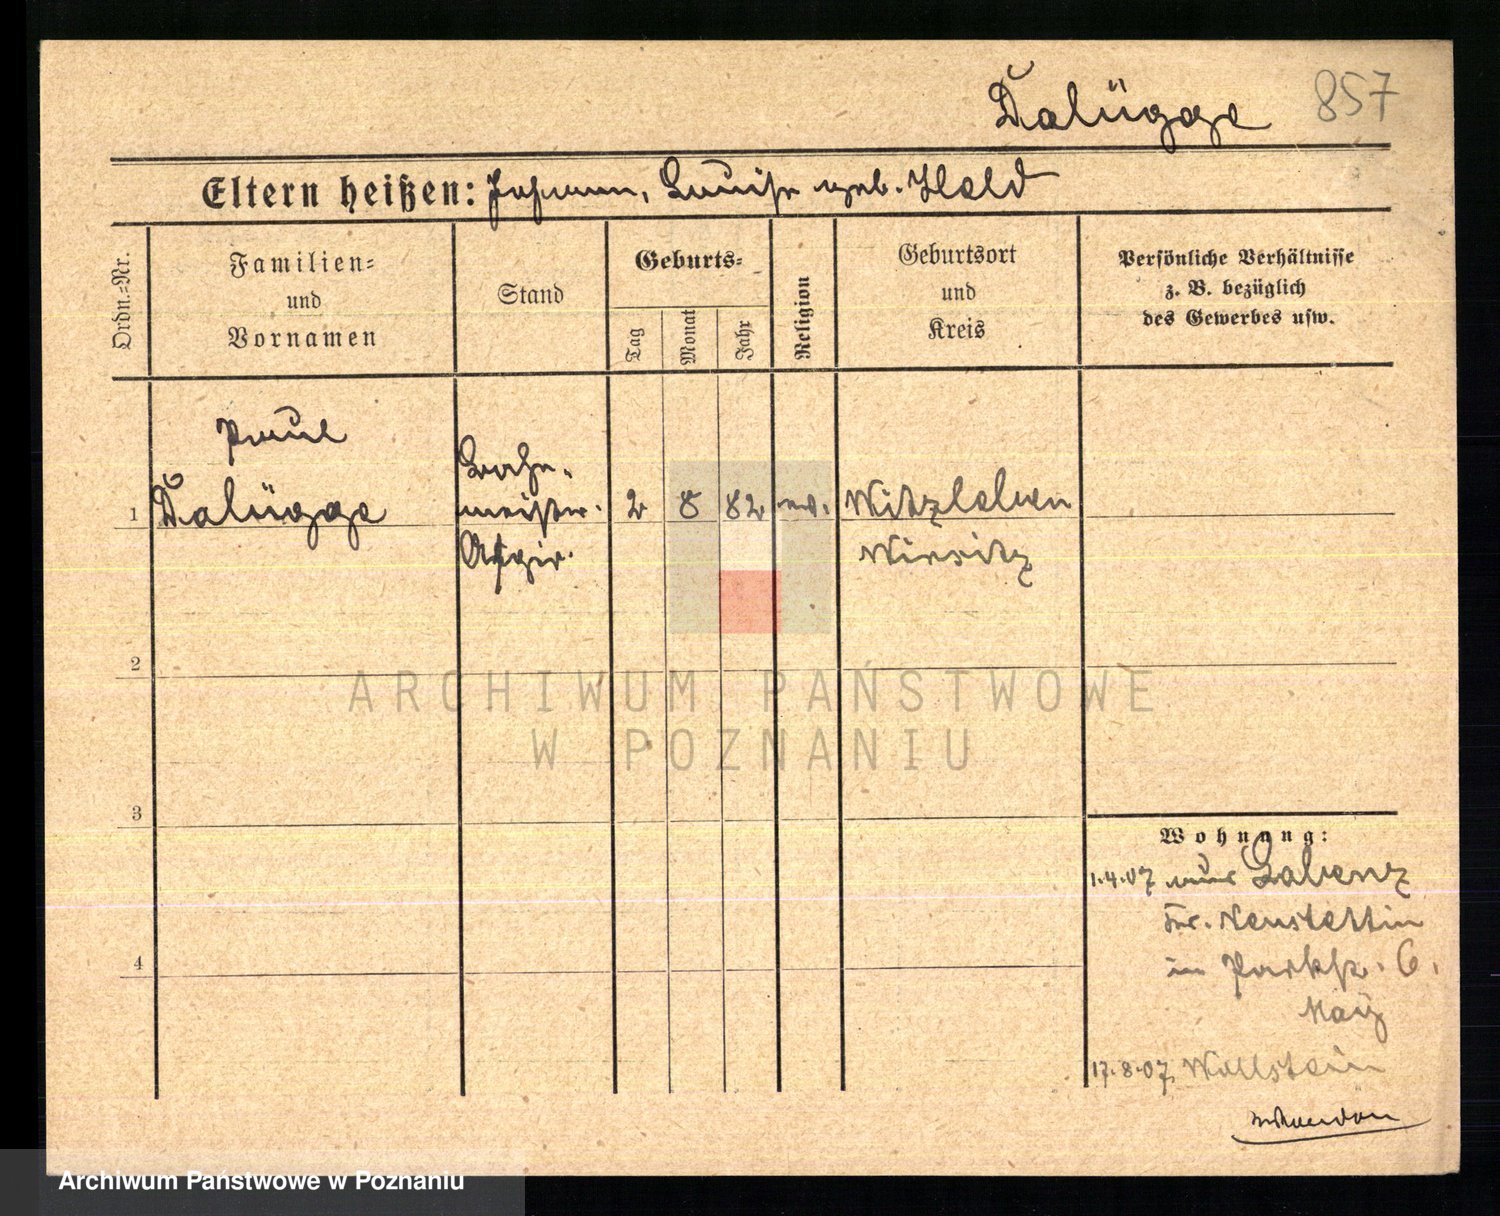 Dalügge 857
Eltern heißen: Johann, Luise geb. Held
Ordn.-Nr.
Familien-
und
Vornamen
Stand
Geburts-
Tag
Monat
Jahr
Religion
Geburtsort
und
Kreis
Persönliche Verhältnisse
z. B. bezüglich
des Gewerbes usw.
Paul
1 Dalügge
Bahn-
meister-
Aspir.
2 8 82 ev.
Witzleben
Wirsitz
2
ARCHIWUM PAŃSTWOWE
W POZNANIU
3
Wohnung:
1.4.07 aus
Kr. Neustettin
in Parkstr. 6.
4
17.8.07 Wollstein
Archiwum Państwowe w Poznaniu